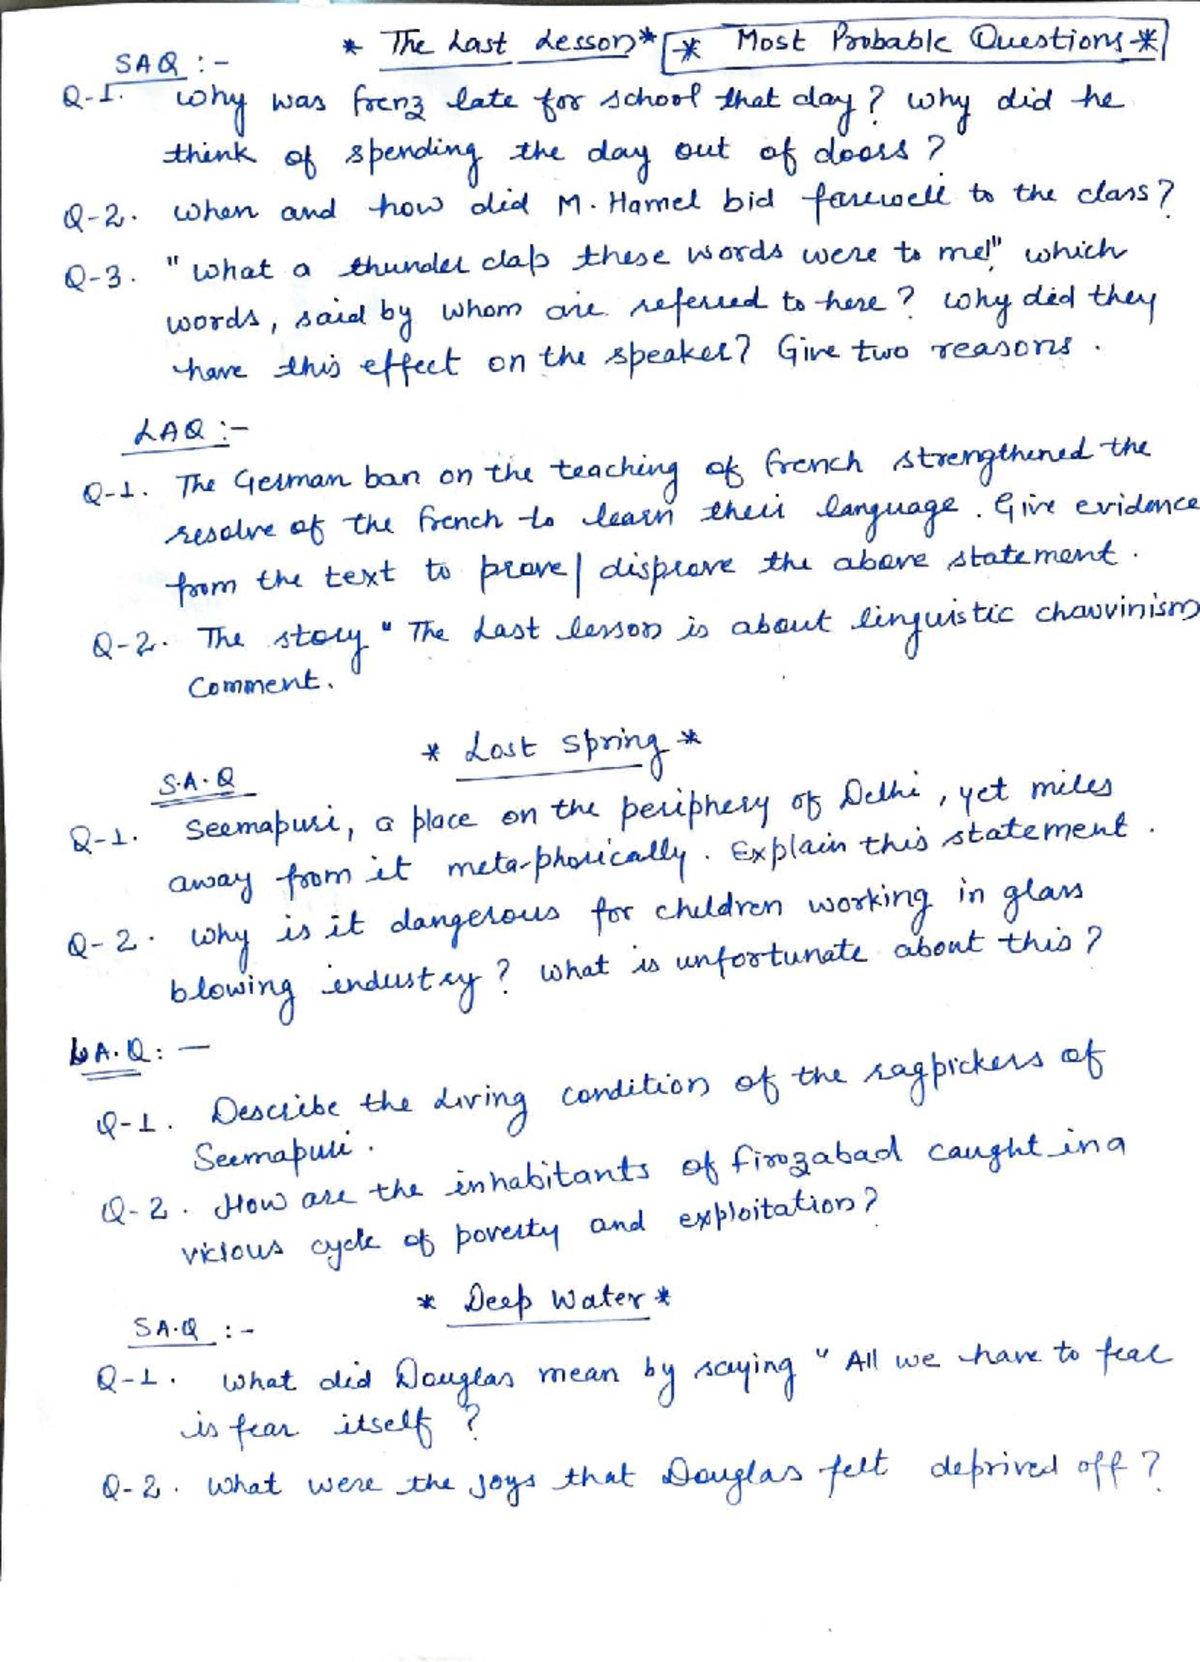 * The Last Lesson * * Most Probable Questions *
SAQ :-
Q-1. Why was frenz late for school that day? Why did he
think of spending the day out of doors?
Q-2. When and how did M. Hamel bid farewell to the class?
Q-3. "What a thunder clap these words were to me!" which
words, said by whom are referred to here? Why did they
have this effect on the speaker? Give two reasons.
LAQ :-
Q-1. The German ban on the teaching of french strengthened the
resolve of the french to learn their language. Give evidence
from the text to prove/ disprove the above statement.
Q-2. The story "The Last lesson is about linguistic chauvinism
Comment.
* Lost Spring *
S.A.Q
Q-1. Seemapuri, a place on the periphery of Delhi, yet miles
away from it meta-phorically. Explain this statement.
Q-2. Why is it dangerous for children working in glass
blowing industry? What is unfortunate about this?
L.A.Q: -
Q-1. Describe the living condition of the ragpickers of
Seemapuri.
Q-2. How are the inhabitants of firozabad caught in a
vicious cycle of poverty and exploitation?
* Deep Water *
SA.Q :-
Q-1. What did Douglas mean by saying "All we have to fear
is fear itself?
Q-2. What were the joys that Douglas felt deprived off?